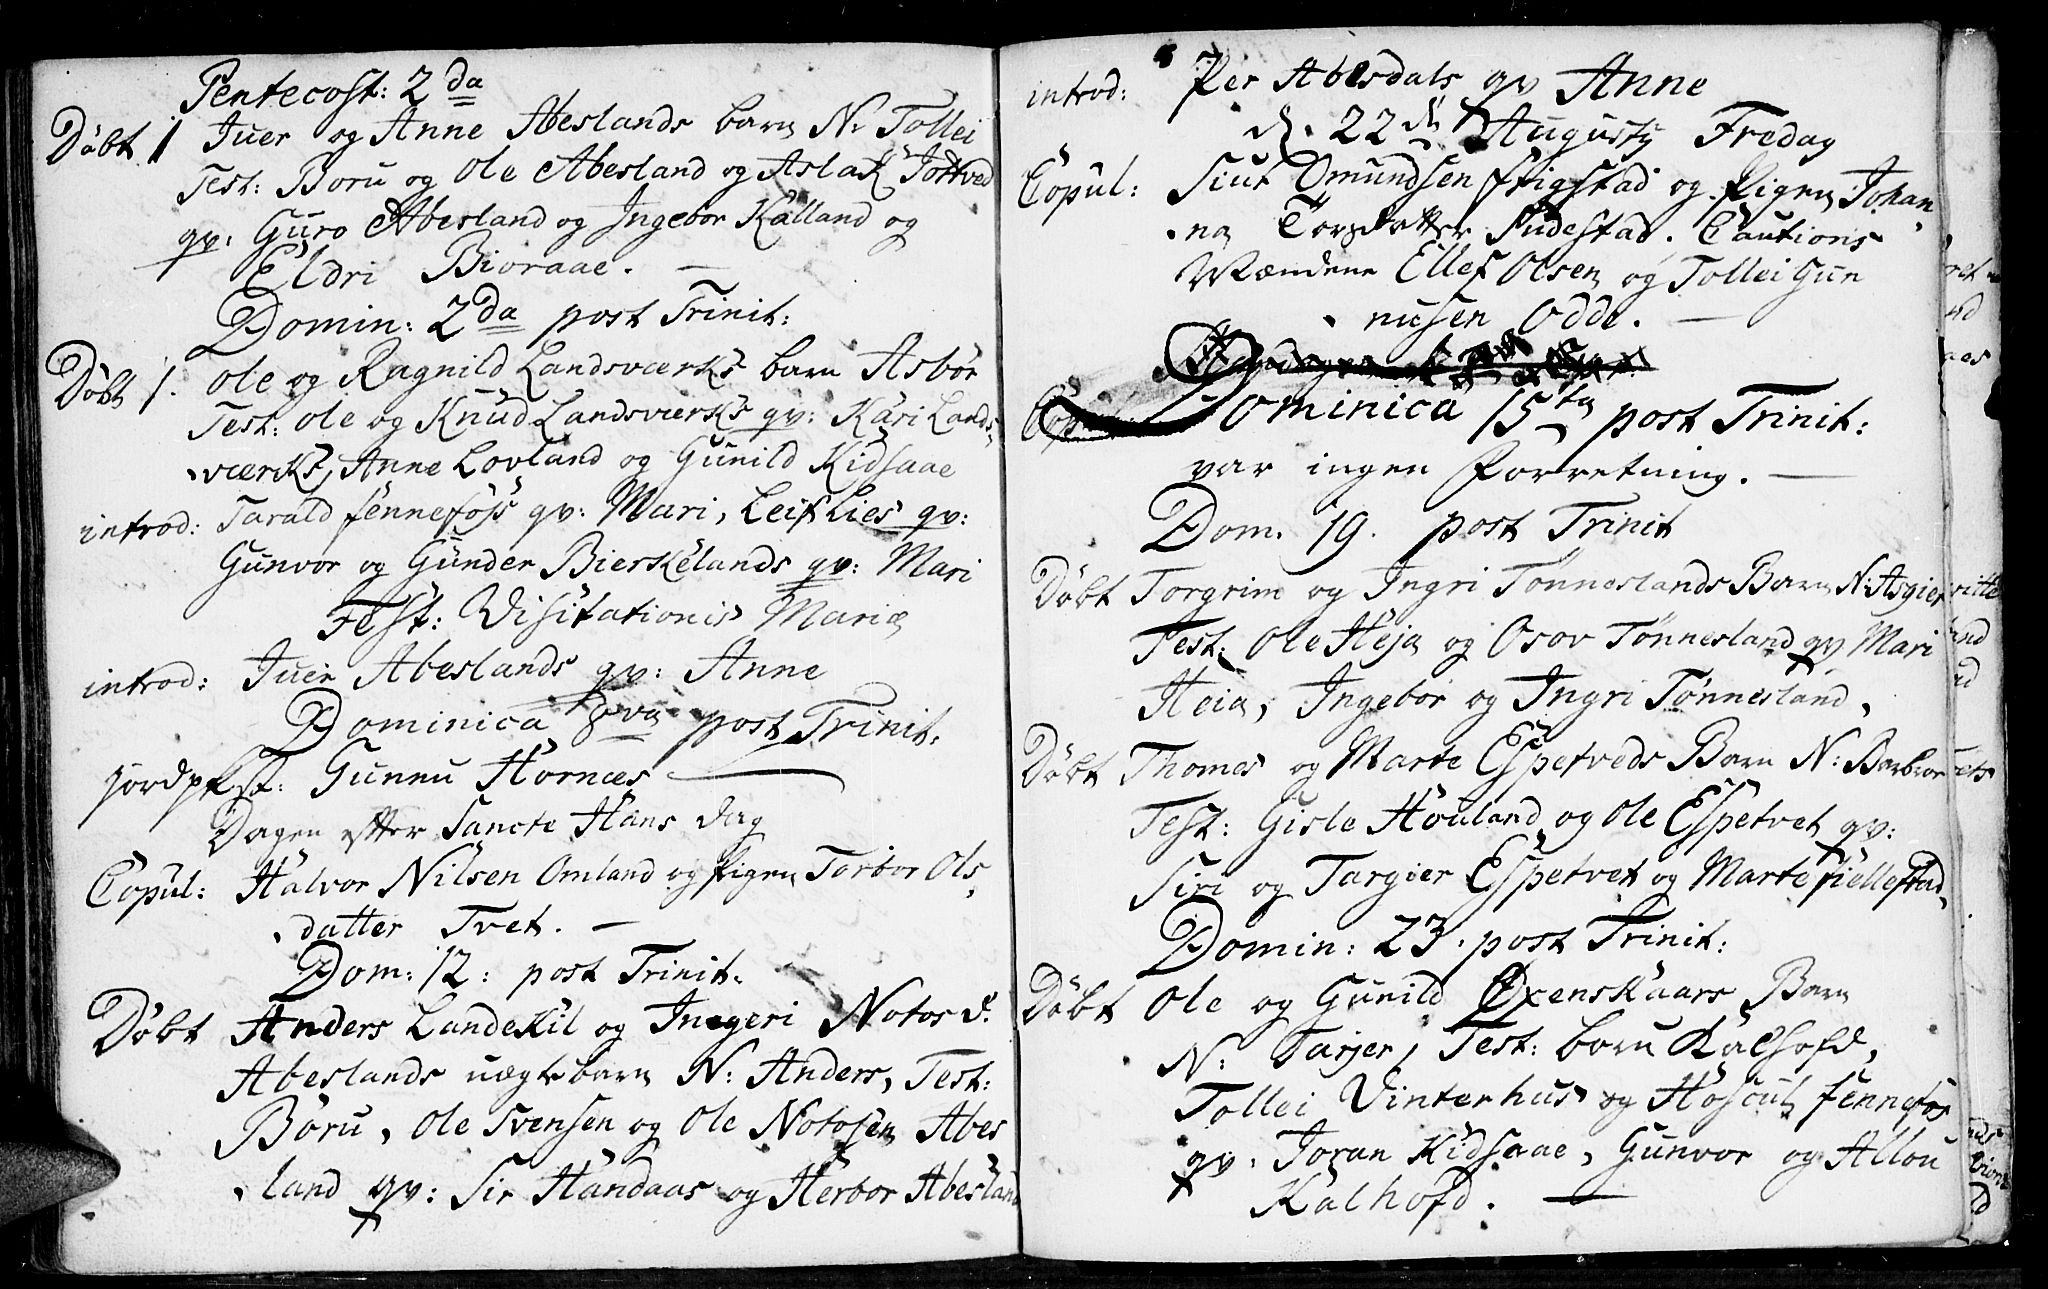 Pentecost: 2da
Döbt 1 Juer og Anne Abeslands barn N. Tollei
Test: Boru og Ole Abesland og Aslak Jottved
qv: Guro Abesland og Ingebor Kalland og
Eldri Bioraae. —
Domin: 2da post Trinit:
Döbt 1. Ole og Ragnild Landsværks barn Asbör
Test: Ole og Knud Landsværks qv: Kari Lands-
værks, Anne Lovland og Gunild Kidsaae
introd: Tarald Fennefoss qv: Mari, Leif Lies qv:
Gunvor og Gunder Bierkelands qv: Mari
Fest: Visitationis Mariæ
introd: Juer Abeslands qv: Anne
Dominica 8va post Trinit:
jordpkst: Gunnu Hornæs
Dagen efter Sancte Hans dag
Copul: Halvor Nilsen Omland og Pigen Torbor Ols-
datter Tvet. —
Dom: 12: post Trinit.
Döbt Anders Landekil og Ingeri Notos d.
Abeslands uægte barn N: Anders, Test:
Böru, Ole Svensen og Ole Notosen Abes
land qv: Sir Handaas og Herbor Abesland
introd: Per Abesdals qv Anne
d. 22de Augusty Fredag
Copul: Siur Omundsen Frigstad og Pigen Johan-
na Torsdatter Sudestad. Cautions-
Mændene Ellef Olsen og Tollei Gun
nusen Odde. —
Dominica 15ta post Trinit:
var ingen Forretning. —
Dom. 19. post Trinit
Döbt Torgrim og Ingri Tonneslands Barn N: Asgier
Test: Ole Heja og Osov Tönnesland qv Mari
Heia, Ingebor og Ingri Tönnesland,
Döbt Thomas og Marte Espetveds Barn N: Barbror
Test: Gisle Houland og Ole Espetvet qv:
Siri og Targier Espetvet og Marte Fiellestad
Domin: 23. post Trinit:
Döbt Ole og Gunild Oxenskaars Barn
N: Tarjer, Test: boru Kalhofd,
Tollei Vinterhus og Höscul Fennefos
qv. Joran Kidsaae, Gunvor og Allou
Kalhofd. —